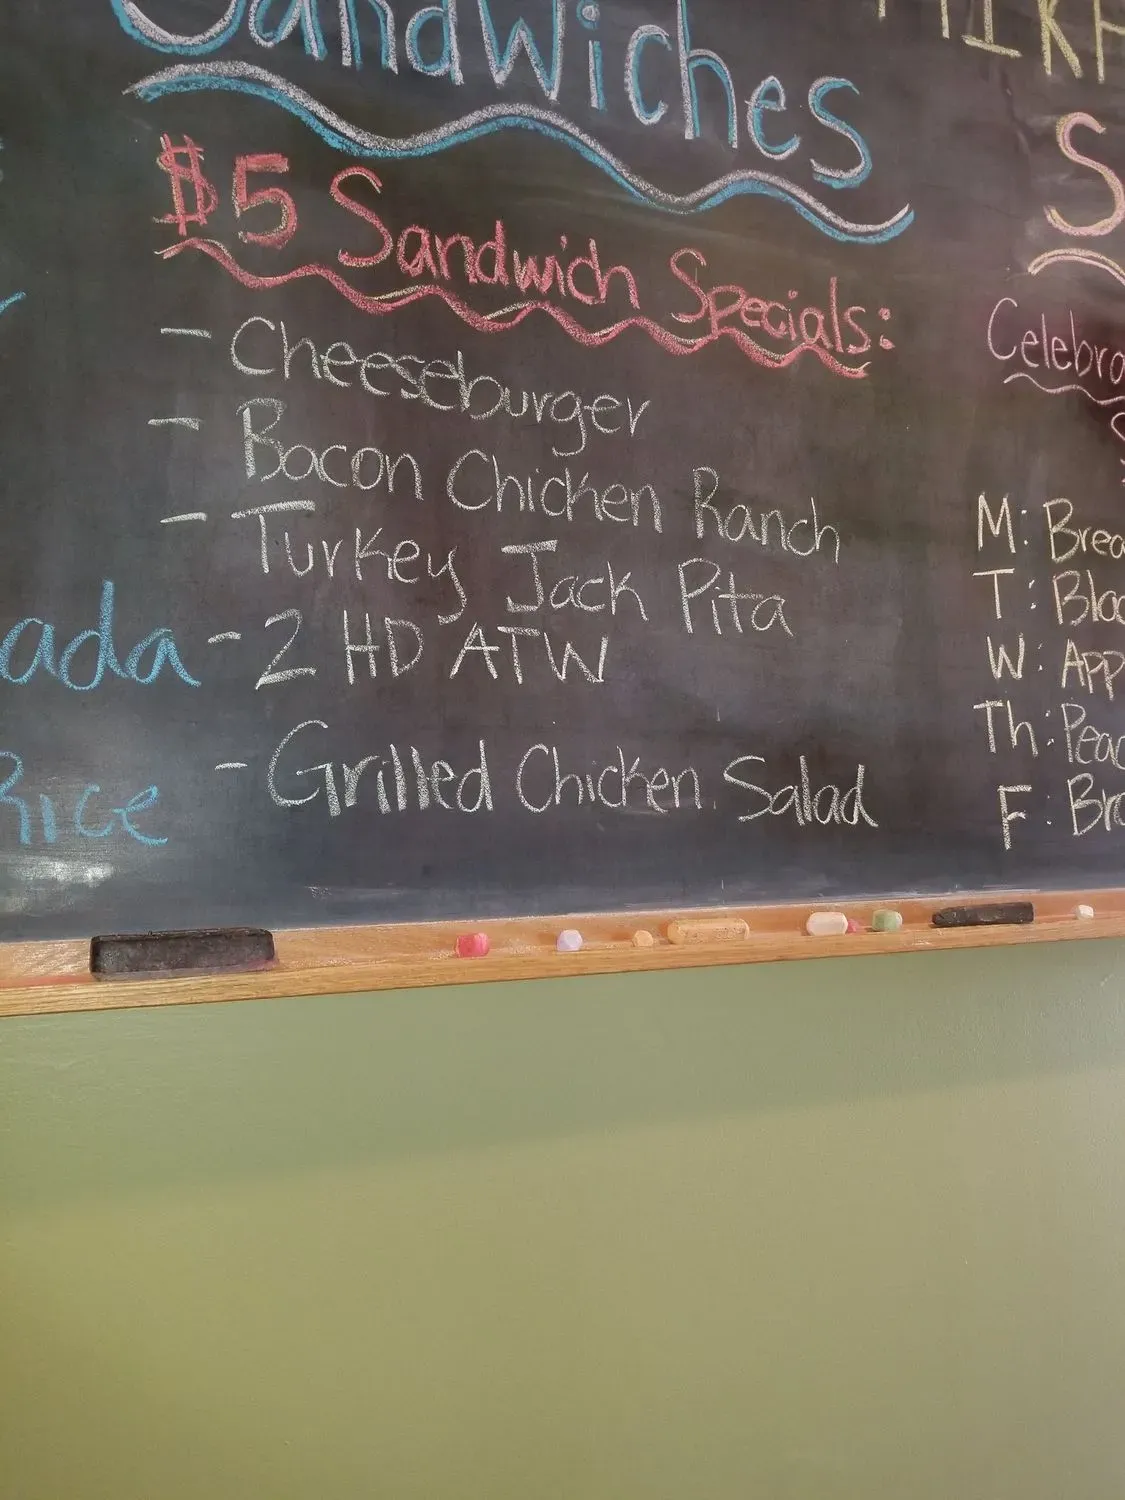 Sandwiches
$5 Sandwich Specials:
- Cheeseburger
- Bacon Chicken Ranch
- Turkey Jack Pita
- 2 HD ATW
- Grilled Chicken Salad
ada
Rice
M:
T:
W:
Th:
F: